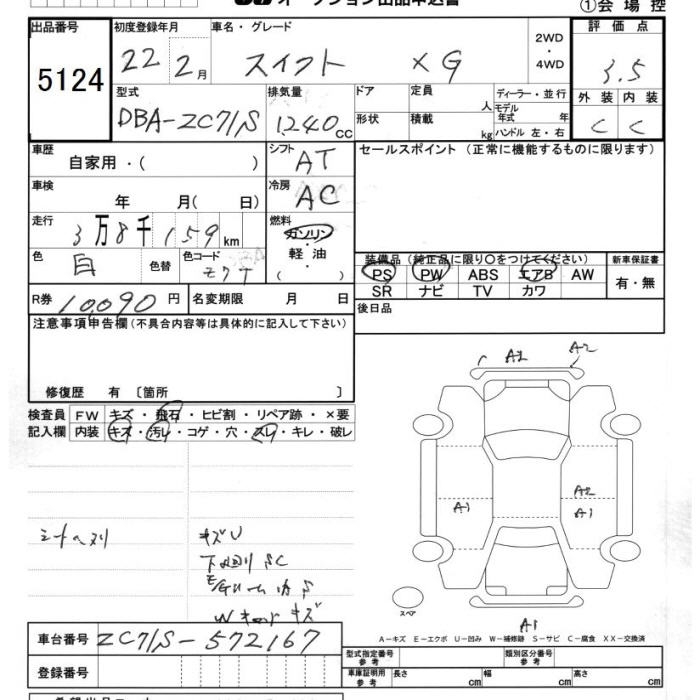 オークション出品申込書
①会場控
出品番号 5124
初度登録年月 22年 2月
車名・グレード スイフト XG
2WD・4WD
評価点 3.5
外装 C 内装 C
型式 DBA-ZC71S
排気量 1240cc
ドア
形状
定員 人
積載 kg
ディーラー・並行
モデル年式 年
ハンドル 左・右
車歴 自家用・( )
シフト AT
セールスポイント (正常に機能するものに限ります)
車検 年 月( 日)
冷房 AC
走行 3万8千159km
燃料 ガソリン・軽油・( )
色 白 色替 色コード Z7T
装備品 (純正品に限り○をつけてください)
新車保証書
PS PW ABS エアB AW
SR ナビ TV カワ
有・無
R券 10,090円
名変期限 月 日
後日品
注意事項申告欄(不具合内容等は具体的に記入して下さい)
修復歴 有〔箇所 〕
検査員記入欄
FW キズ・飛石・ヒビ割・リペア跡・×要
内装 キズ・汚レ・コゲ・穴・スレ・キレ・破レ
A2 A2
A1 A2
A1
シートヘタリ
キズU
下回りSC
Wキャッチキズ
スペア
A1
A-キズ E-エクボ U-凹み W-補修跡 S-サビ C-腐食 XX-交換済
車台番号 ZC71S-572167
登録番号
型式指定番号 参考
類別区分番号 参考
車庫証明用 参考 長さ cm 幅 cm 高さ cm